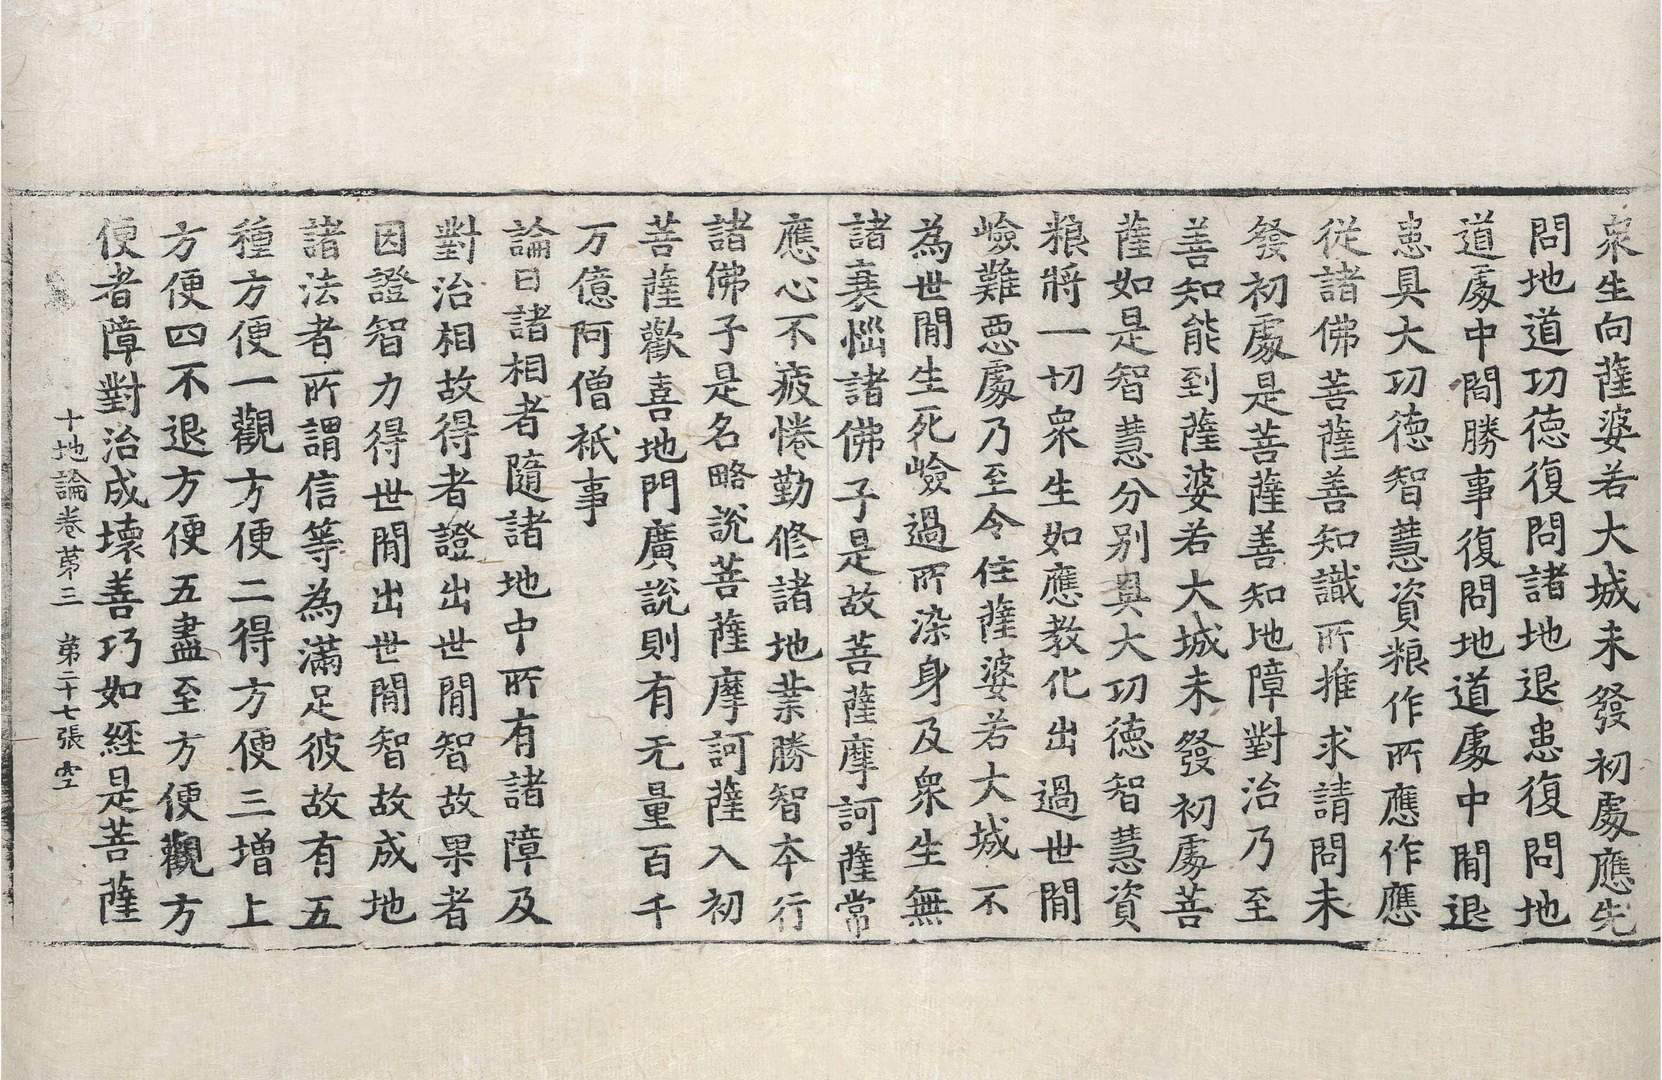 衆生向薩婆若大城未發初處應先
問地道功德復問諸地退患復問地
道處中閒勝事復問地道處中閒退
患具大功德智慧資粮作所應作應
從諸佛菩薩善知識所推求請問未
發初處是菩薩善知地障對治乃至
善知能到薩婆若大城未發初處菩
薩如是智慧分別具大功德智慧資
粮將一切衆生如應教化出過世閒
嶮難惡處乃至令住薩婆若大城不
為世閒生死嶮過所染身及衆生無
諸衰惱諸佛子是故菩薩摩訶薩常
應心不疲惓勤修諸地業勝智本行
諸佛子是名略說菩薩摩訶薩入初
菩薩歡喜地門廣說則有无量百千
万億阿僧祇事
論曰諸相者隨諸地中所有諸障及
對治相故得者證出世閒智故果者
因證智力得世閒出世閒智故成地
諸法者所謂信等為滿足彼故有五
種方便一觀方便二得方便三增上
方便四不退方便五盡至方便觀方
便者障對治成壞善巧如經是菩薩
十地論卷第三 第二十七張 空